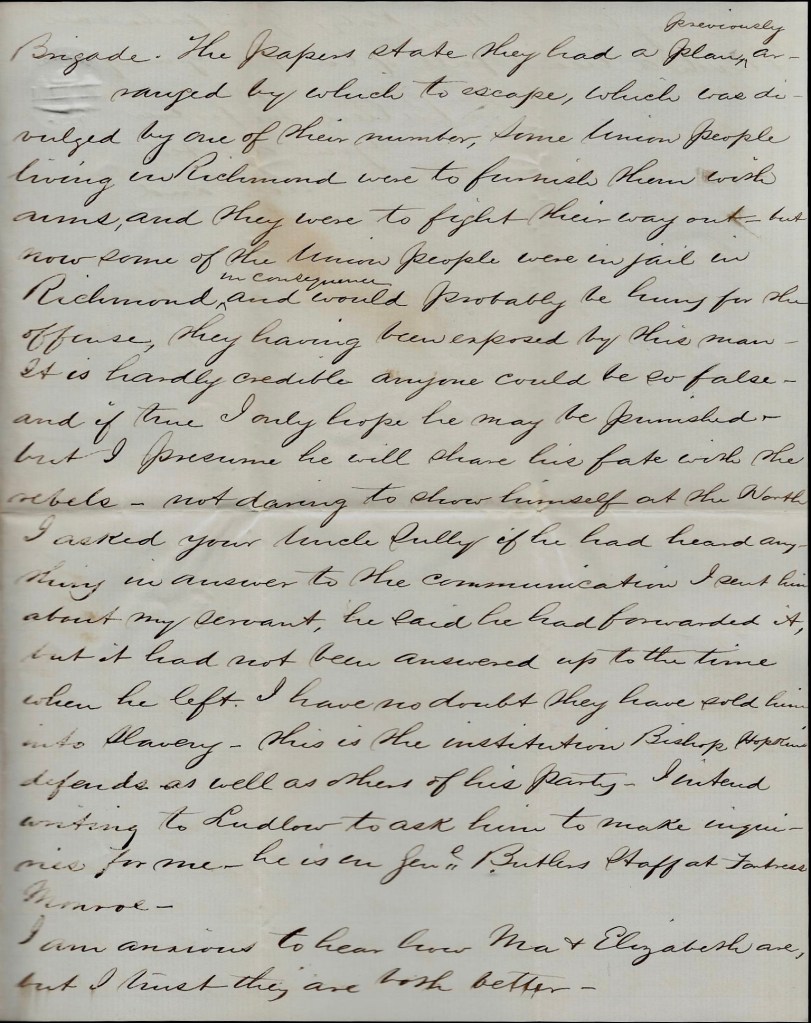 previously
Brigade. The papers state they had a plan, ar-
ranged by which to escape, which was di-
vulged by one of their number, some Union people
living in Richmond were to furnish them with
arms, and they were to fight their way out - but
now some of the Union people were in jail in
in consequence
Richmond, and would probably be hung for the
offense, they having been exposed by this man -
It is hardly credible anyone could be so false -
and if true I only hope he may be punished -
but I presume he will share his fate with the
rebels - not daring to show himself at the North
I asked your Uncle Sully if he had heard any-
thing in answer to the communication I sent him
about my servant, he said he had forwarded it,
but it had not been answered up to the time
when he left. I have no doubt they have sold him
into Slavery - this is the institution Bishop Hopkins
defends as well as others of his party - I intend
writing to Ludlow to ask him to make inqui-
ries for me - he is on Genl Butlers Staff at Fortress
Monroe -
I am anxious to hear how Ma & Elizabeth are,
but I trust they are both better -